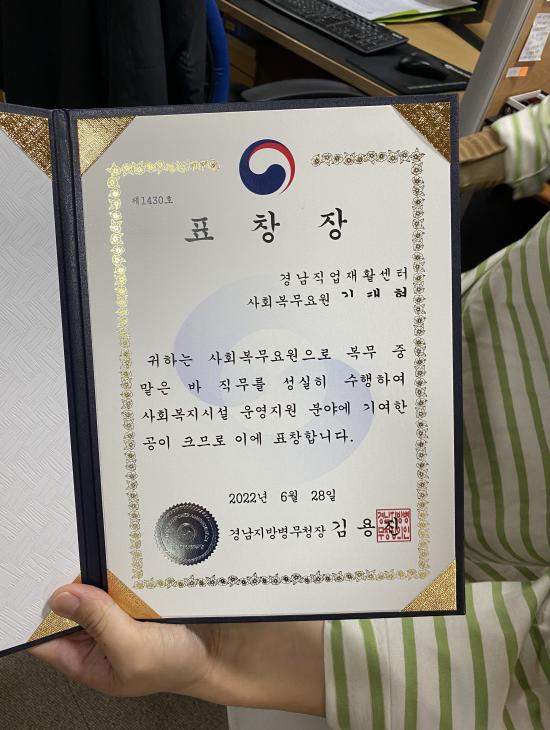 제1430호
표 창 장
경남직업재활센터
사회복무요원
귀하는 사회복무요원으로 복무 중
맡은 바 직무를 성실히 수행하여
사회복지시설 운영지원 분야에 기여한
공이 크므로 이에 표창합니다.
2022년 6월 28일
경남지방병무청장 김 용
경남지방병
무청장의인